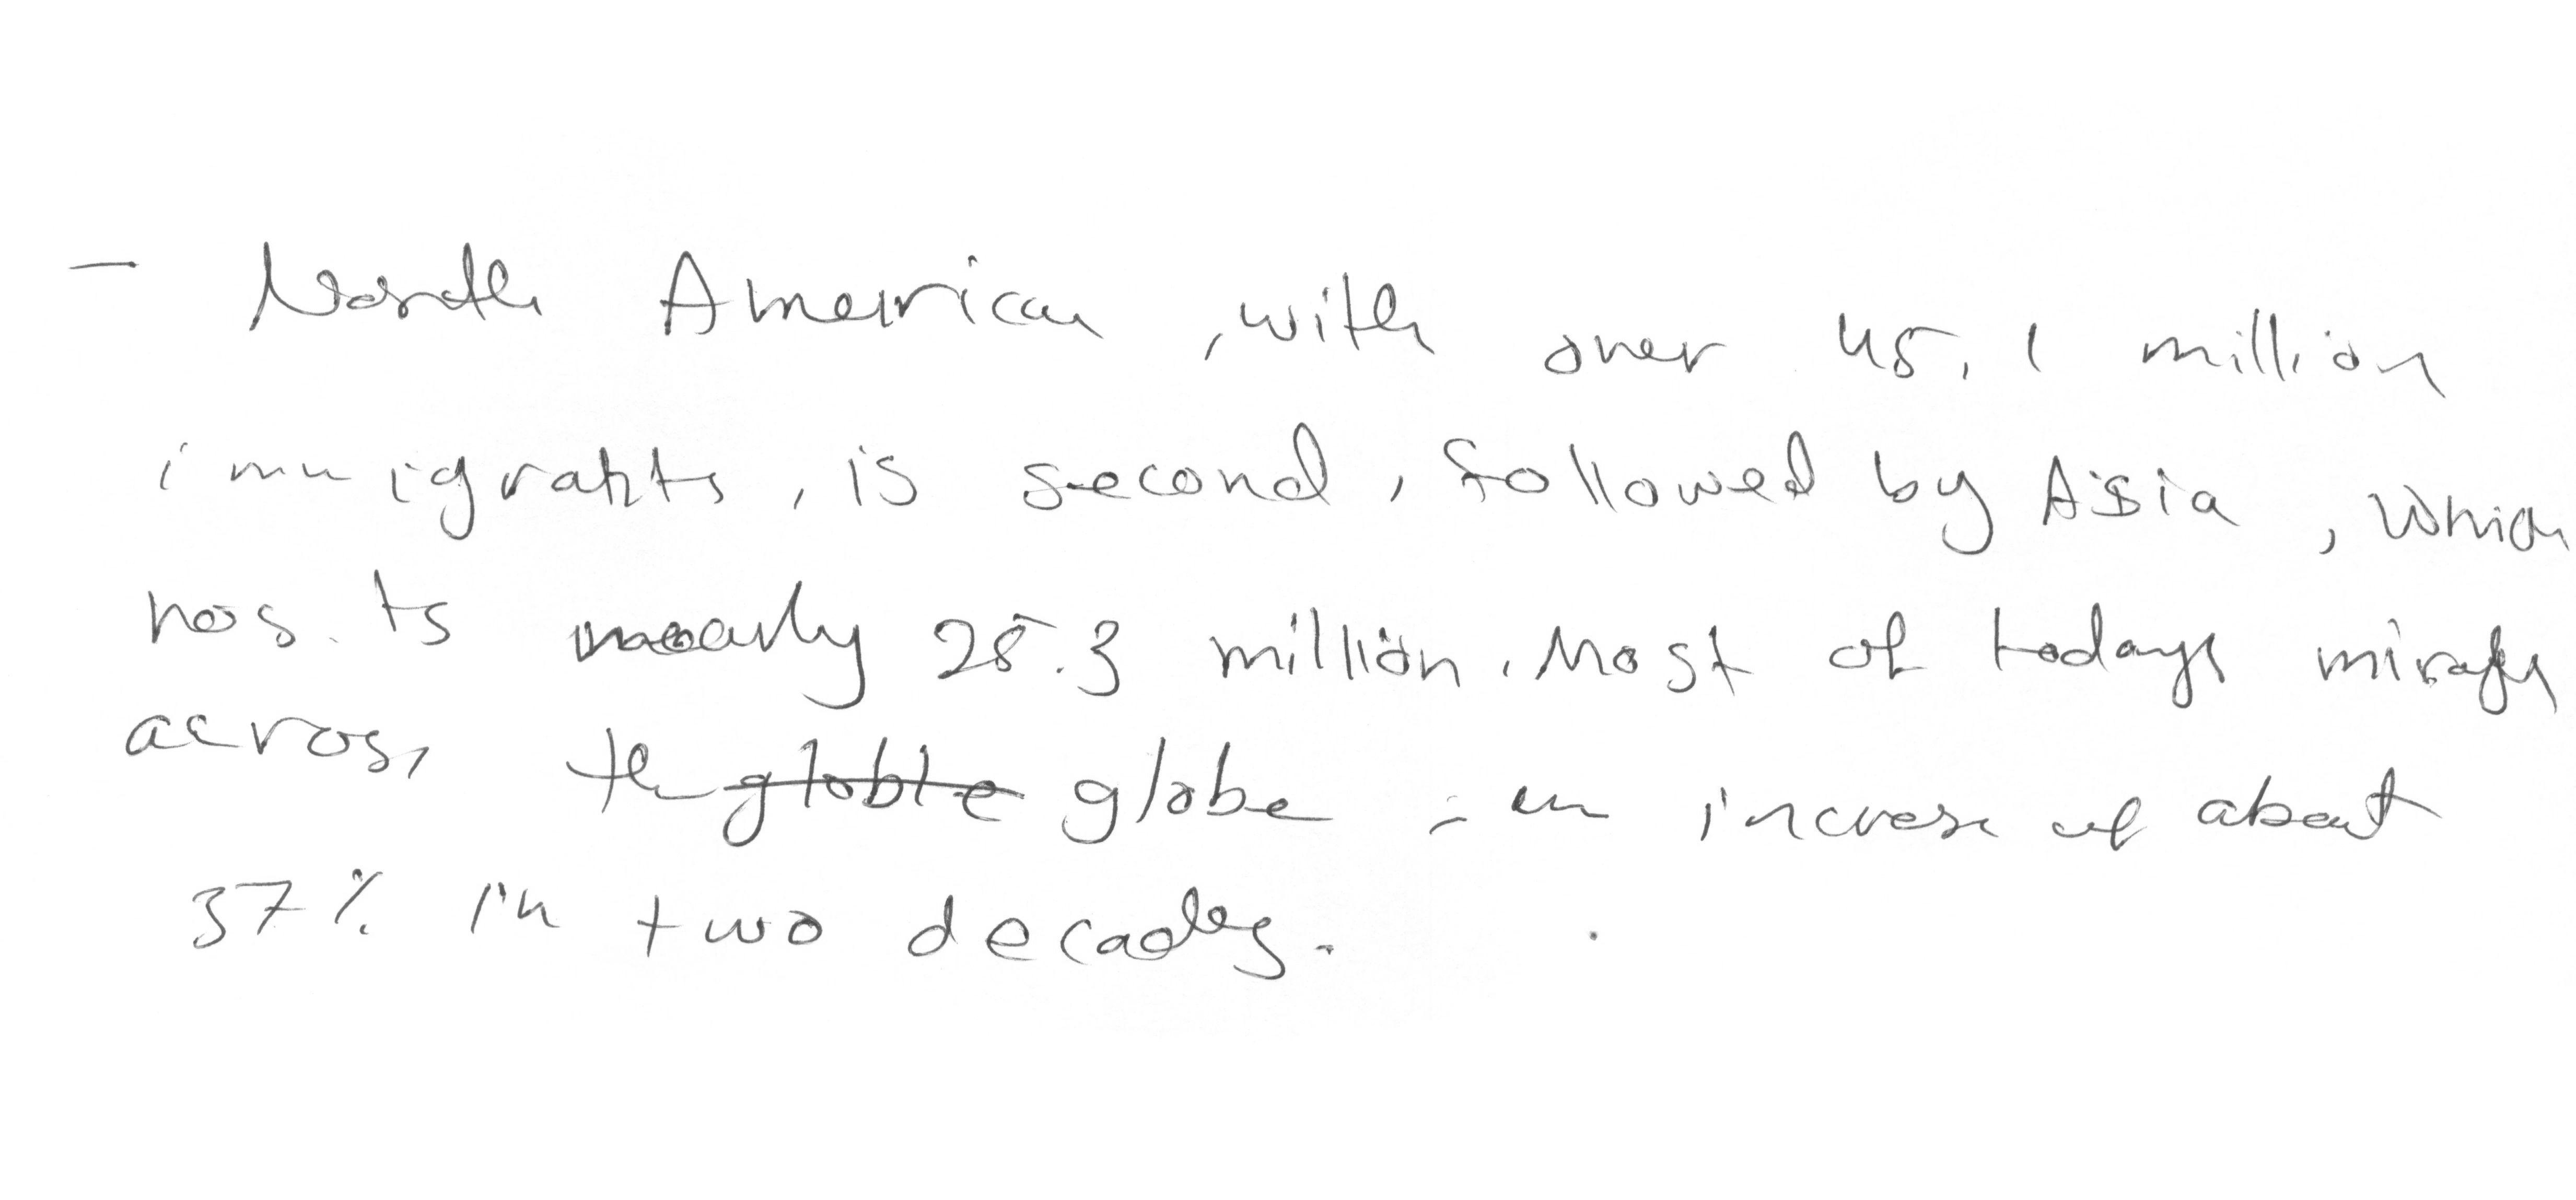 - North American, with over 45,1 million
immigrants, is second, followed by Asia, which
hosts nearly 25.3 million. Most of todays
across the globe - an increse of about
37% in two decades.